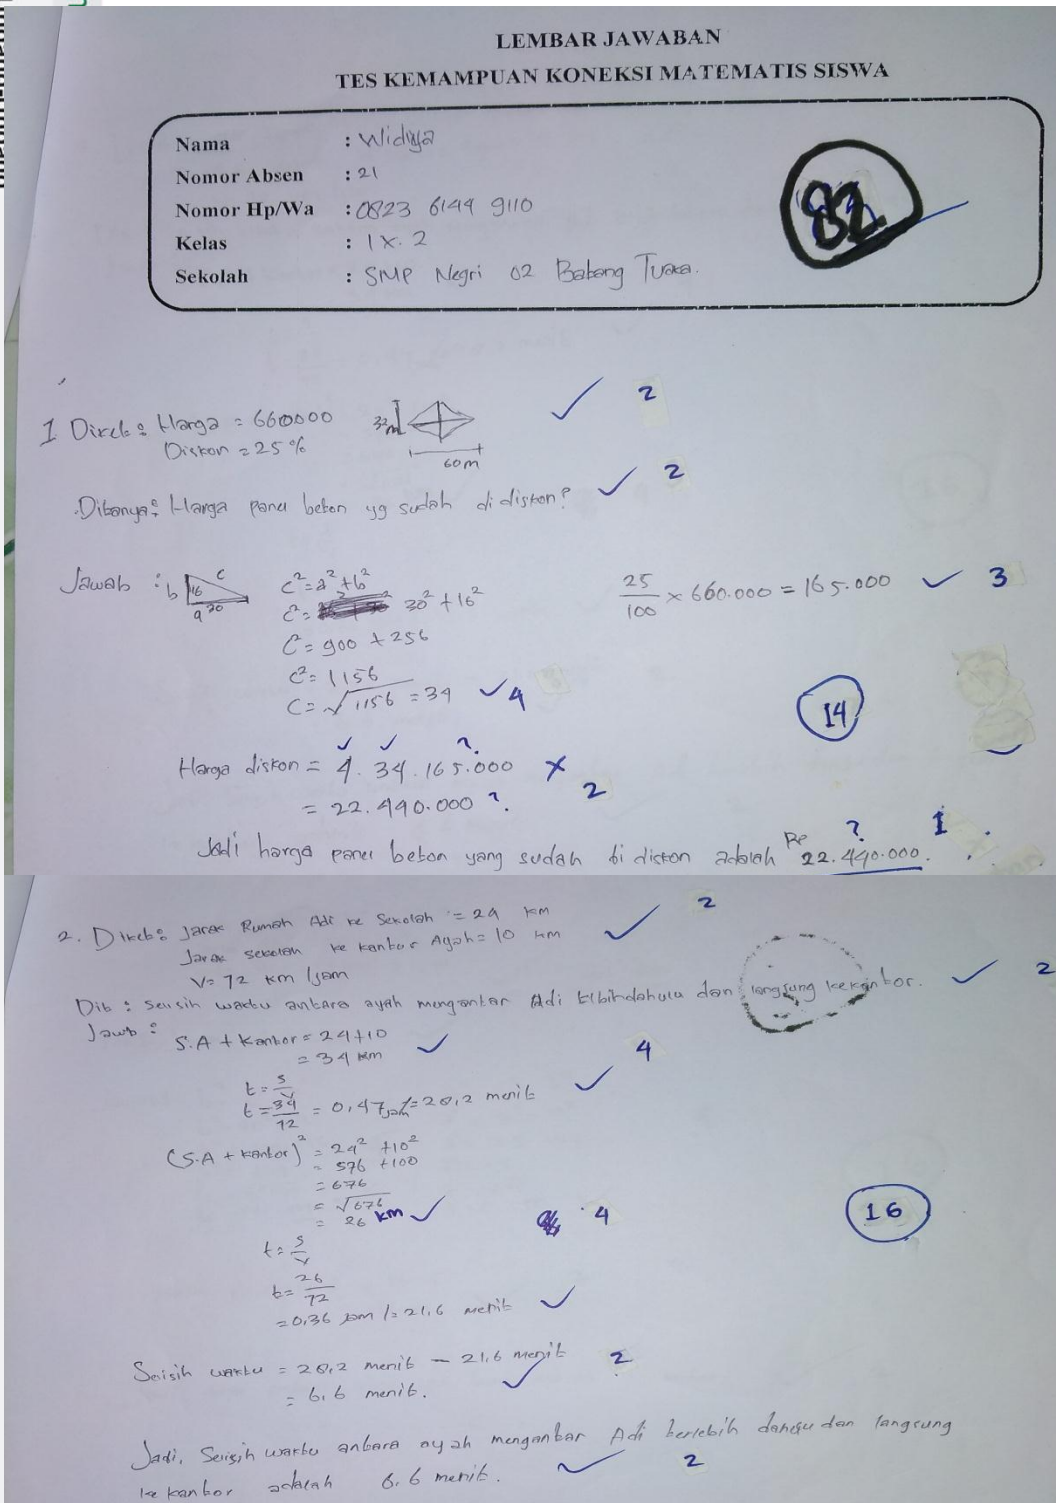 LEMBAR JAWABAN
TES KEMAMPUAN KONEKSI MATEMATIS SISWA
Nama : Widiya
Nomor Absen : 21
Nomor Hp/Wa : 0823 6144 9110
Kelas : IX. 2
Sekolah : SMP Negri 02 Babang Tuaka.
82
1 Dikeb : Harga = 660000 32m 2
Diskon = 25% 60m
Dibanya : Harga panel beton yg sudah di diskon? 2
Jawab : b 16 c a 30 c² = a² + b² 25/100 × 660.000 = 165.000 3
c² = 30² + 16²
c² = 900 + 256
c² = 1156
c = √1156 = 34 4
14
Harga diskon = 4. 34. 165.000 ?
= 22.440.000 ? 2
Jadi harga panel beton yang sudah di diskon adalah Rp 22.440.000. ? 1
2. Dikeb : Jarak Rumah Adi ke Sekolah = 24 km 2
Jarak sekolah ke kantor Ayah = 10 km
V = 72 km/jam
Dib : Seusih waktu antara ayah mengantar Adi dan langsung kekantor. 2
Jawb :
S.A + kantor = 24+10
= 34 km 4
t = s/v
t = 34/72 = 0,47 jam = 28,2 menit
(S.A + kantor)² = 24² + 10²
= 576 + 100
= 676
= √676
= 26 km 4
16
t = s/v
t = 26/72
= 0,36 jam = 21,6 menit
Seisih waktu = 28,2 menit - 21,6 menit 2
= 6,6 menit.
Jadi, Seisih waktu antara ayah mengantar Adi dan langsung
ke kantor adalah 6,6 menit. 2